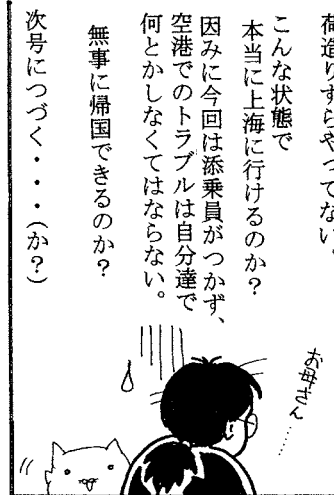 荷造りすらやってない。
こんな状態で
本当に上海に行けるのか？
因みに今回は添乗員がつかず、
空港でのトラブルは自分達で
何とかしなくてはならない。
無事に帰国できるのか？
次号につづく・・・（か？）
お母さん……